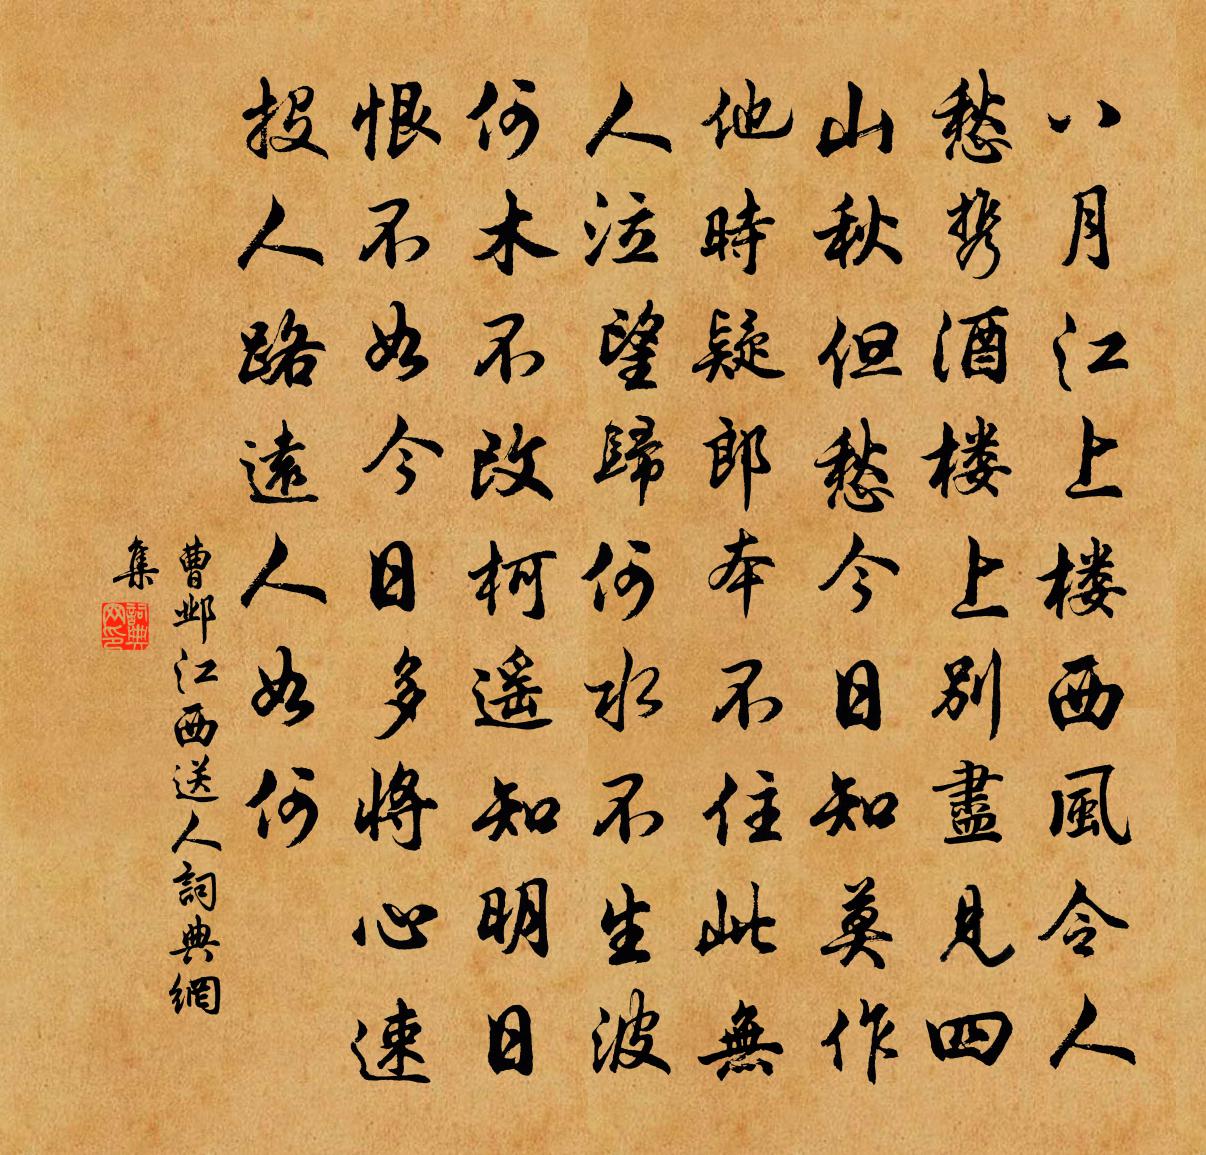 八月江上楼西風令人
愁携酒楼上別盡見四
山秋但愁今日知莫作
他時疑郎本不住此無
人泣望歸何水不生波
何木不改柯遥知明日
恨不如今日多将心速
投人路遠人如何
曹邺江西送人詞典網
集
詞典
网印